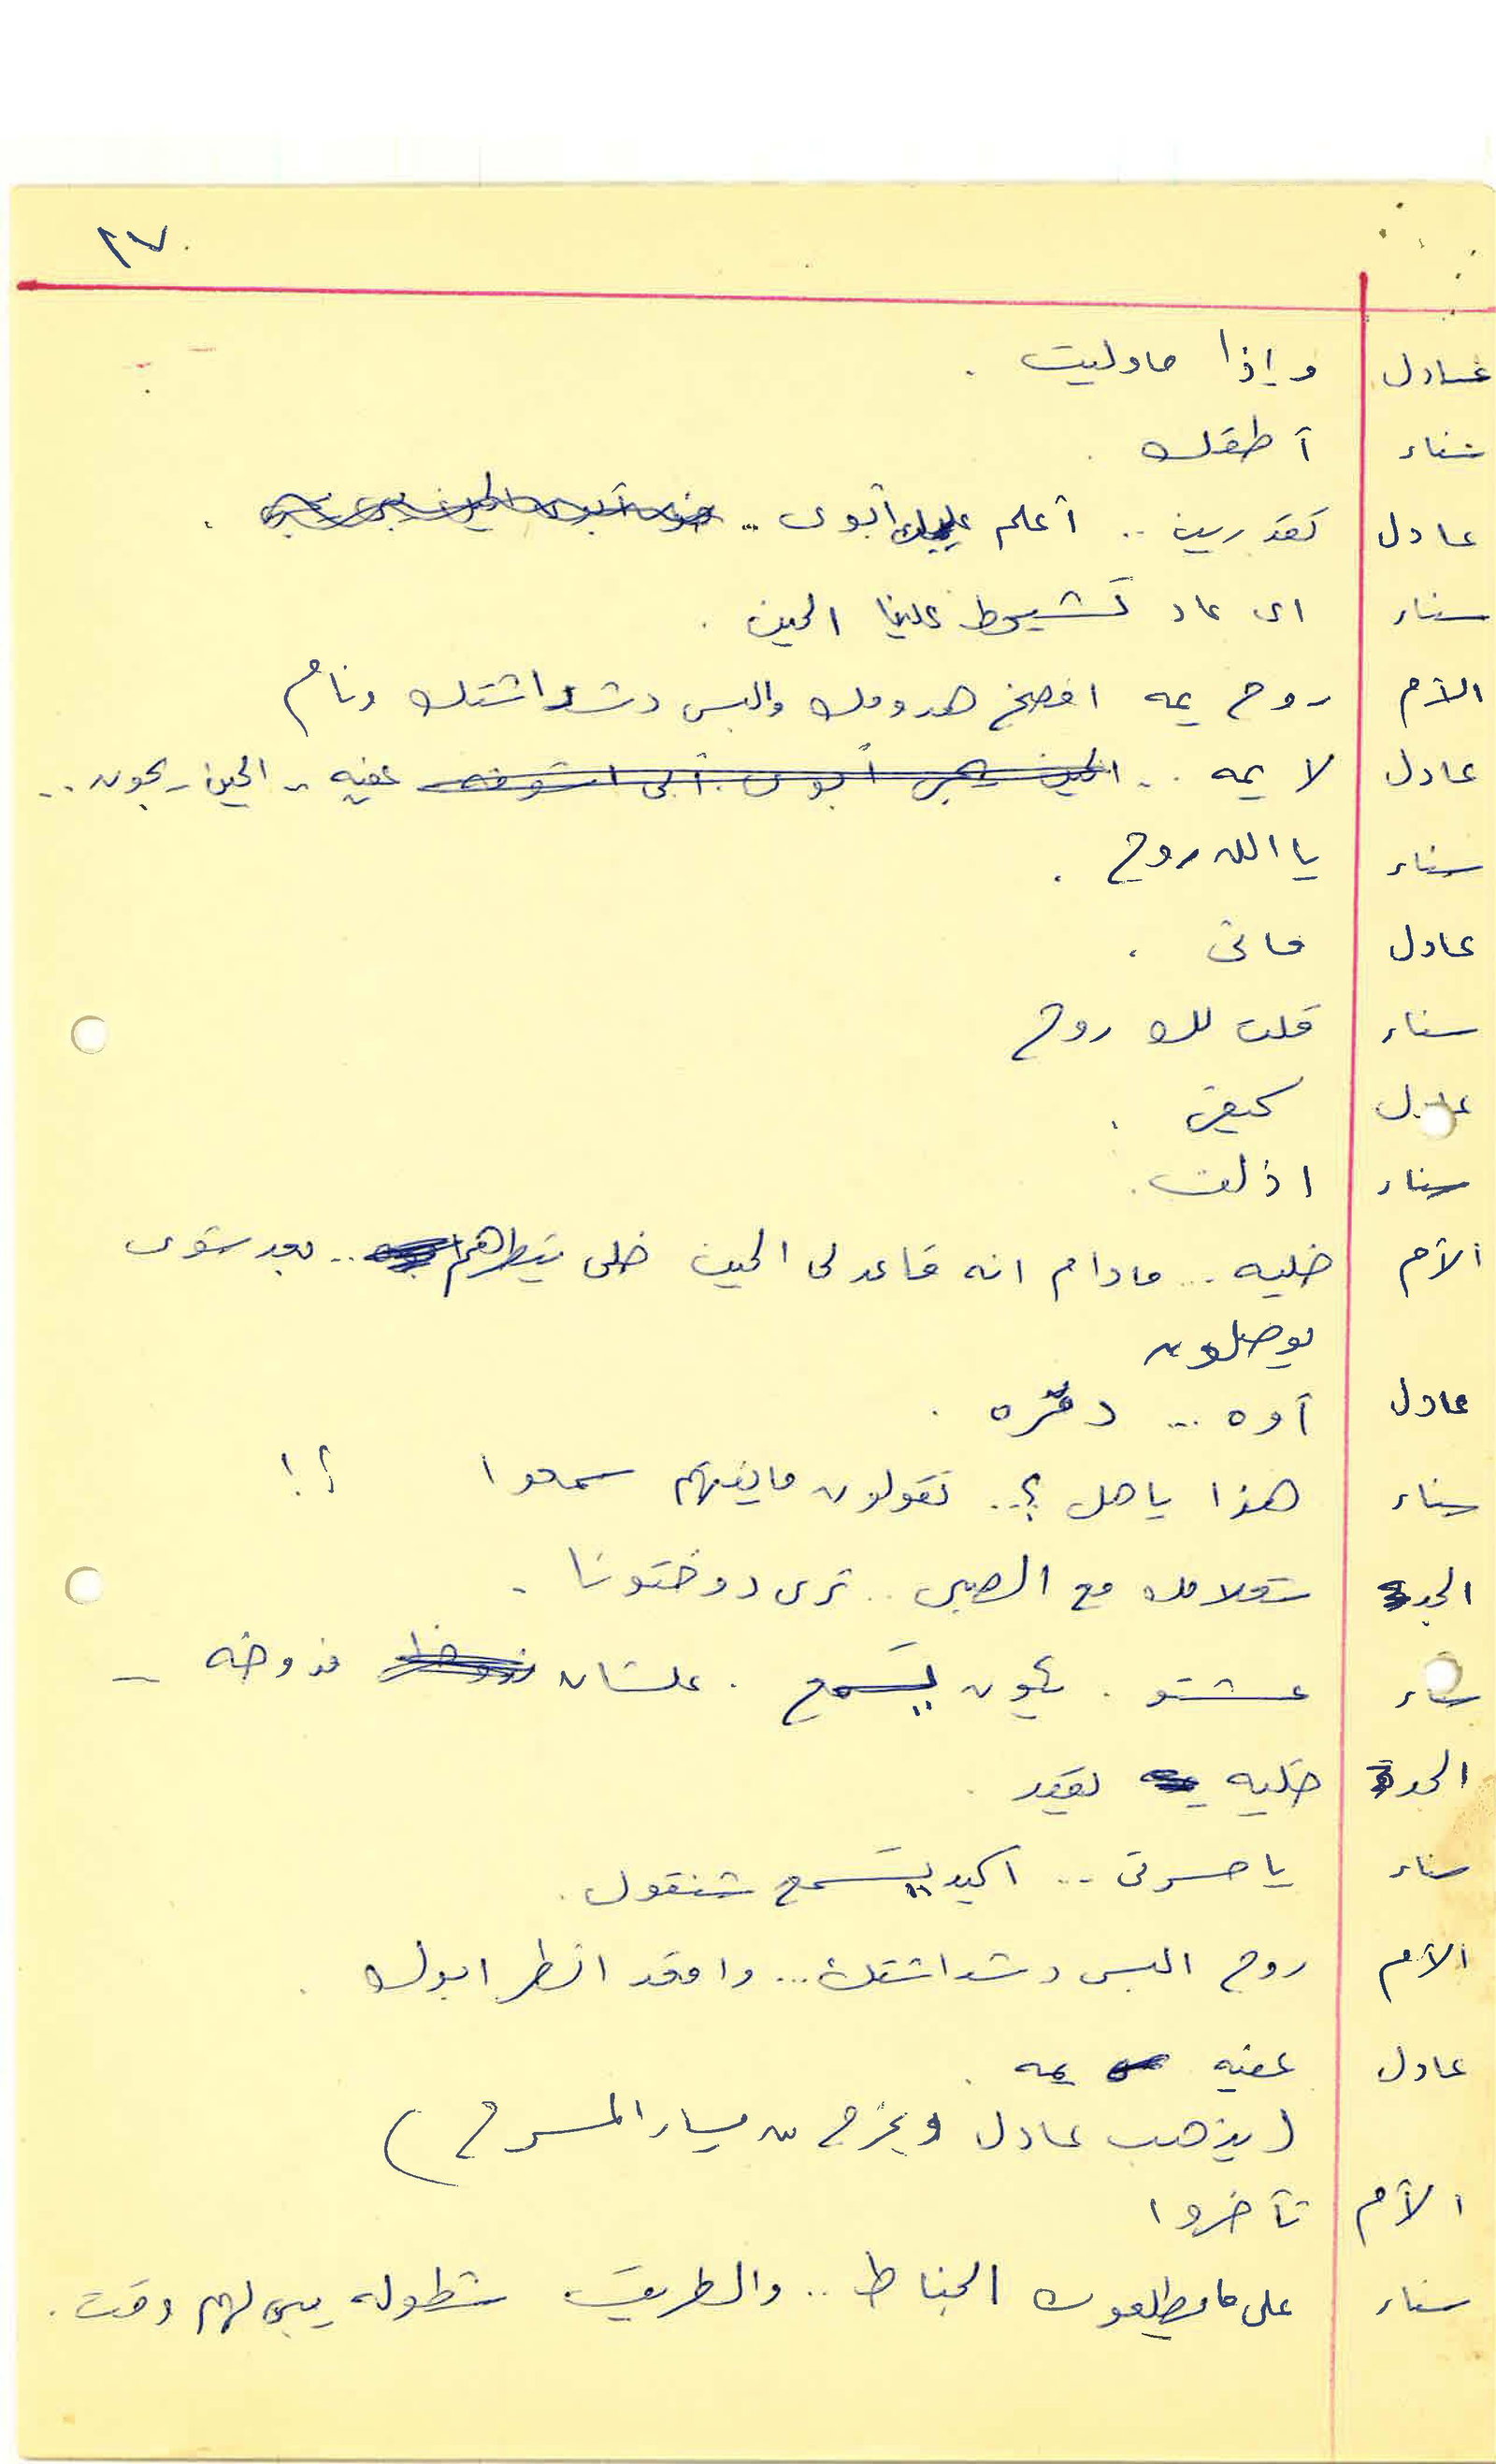 ٢٧
عادل وإذا ما وليت .
سناء أطقك .
عادل تقدرين .. أعلم عليك أبوى ..
سناء اى عاد تشيحط علينا الحين .
الأم روح يمه افصخ هدومك والبس دشداشتك ونام
عادل لا يمه .. الحين يجى أبوى أبى اشوفه عفيه .. الحين يجون ..
سناء يا الله روح .
عادل مانى .
سناء قلت لك روح
عادل كيفى .
سناء اذلف .
الأم خليه .. مادام انه قاعد لى الحين خلى ينطرهم .. بعد شوى
يوصلون
عادل أوه ...
سناء هذا ياهل ؟.. تقولون مايفهم سمعوا ؟!
الجد شعلامك مع الصبى .. ترى دوختونا .
سناء عشتو . يكون يسمع . علشان ندوخه _
الجد خليه يقعد .
سناء يا حسرتى .. اكيد يسمع شنقول .
الأم روح البس دشداشتك ... واقعد انطر ابوك .
عادل عفيه يمه .
( يذهب عادل ويخرج من يسار المسرح )
الأم تأخروا
سناء على ما يطلعون الجناط .. والطريق شطوله يبى لهم وقت .